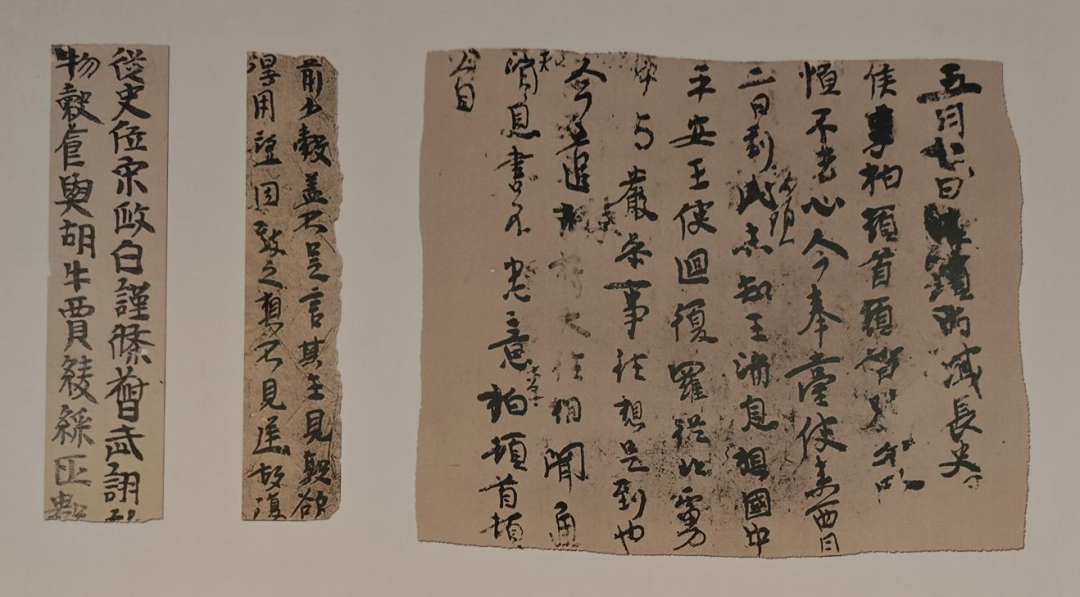 五月七日海頭西域長史
侯李柏頓首頓首別
恒不去心今奉臺使來西月
二日到此海頭未知王消息想國中
平安王使迴復羅從北虜
中与嚴參事往想是到也
今遣使苻大往相聞通
知消息書不悉意柏頓首頓
首
前少穀盖不足言其主見欺欲
得用鹽因致之想不見逕故復
從史位宋政白謹條督武詡
物穀食與胡牛賈綾綵匹數